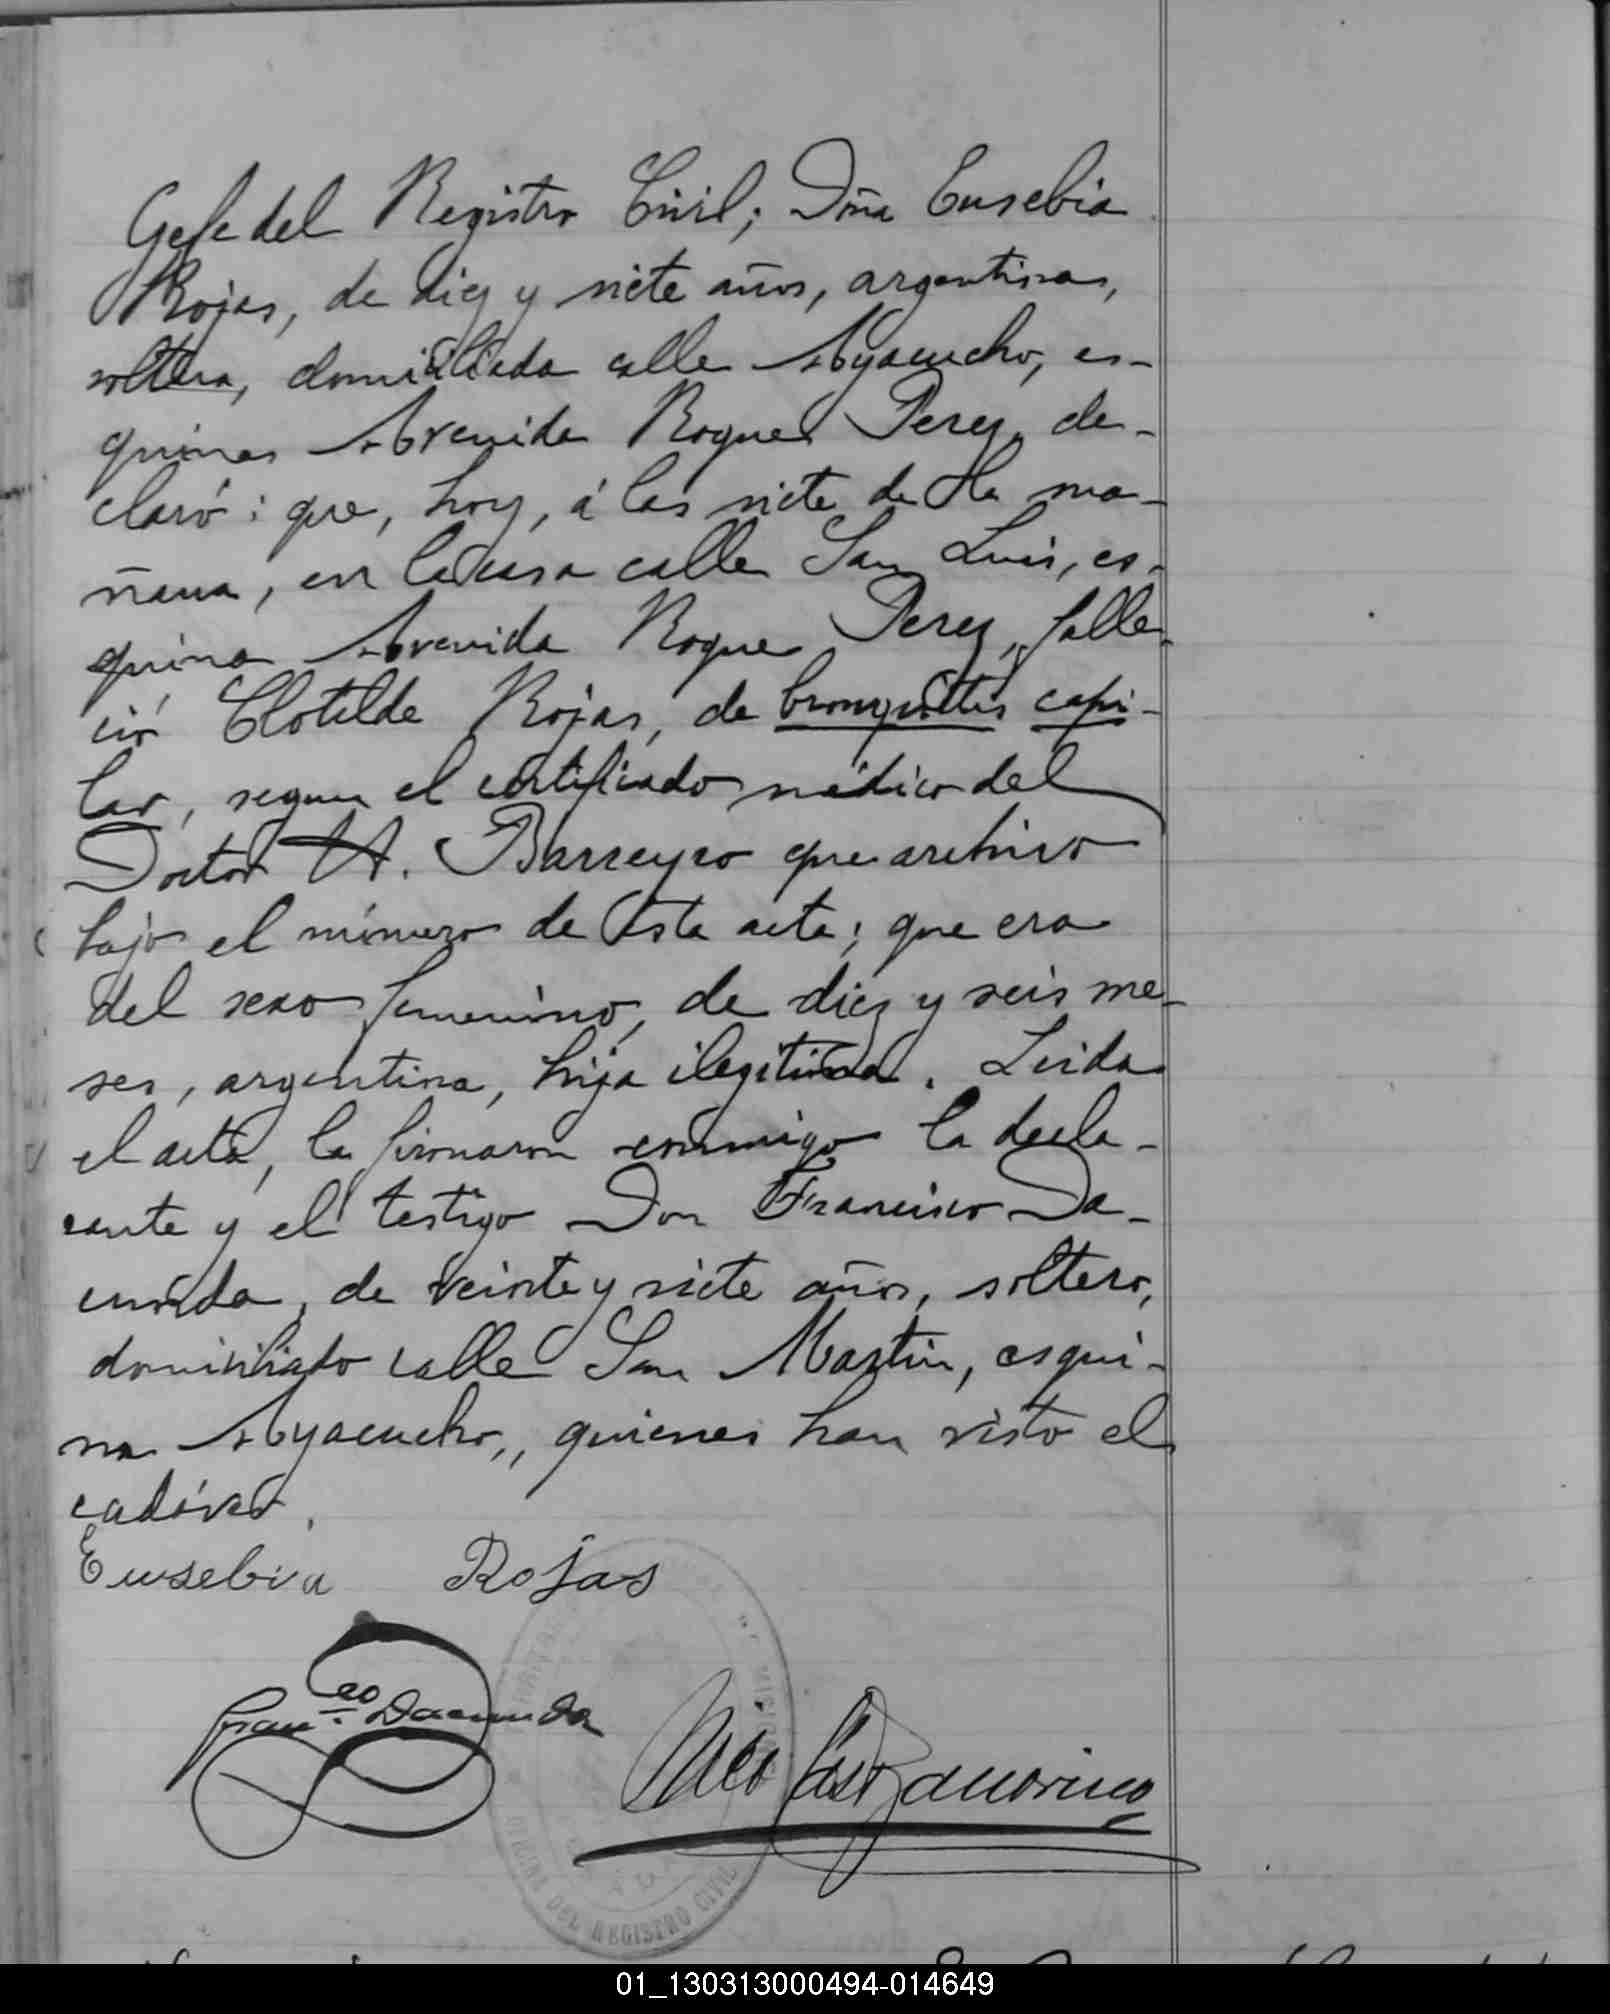 Gefe del Registro Civil; Doña Eusebia
Rojas, de diez y siete años, argentina,
soltera, domiciliada calle Ayacucho, es-
quina Avenida Roque Perez, de-
claró: que, hoy, á las siete de la ma-
ñana, en la casa calle San Luis, es-
quina Avenida Roque Perez, falle-
ció Clotilde Rojas, de bronquitis capi-
lar, segun el certificado médico del
Doctor A. Barreyro que archivo
bajo el número de esta acta; que era
del sexo femenino, de diez y seis me-
ses, argentina, hija ilegitima. Leida
el acta, la firmaron conmigo la decla-
rante y el testigo Don Francisco Da-
cunda, de veinte y siete años, soltero,
domiciliado calle San Martin, esqui-
na Ayacucho, quienes han visto el
cadáver.
Eusebia Rojas
Fran.co Dacunda
OFICINA DEL REGISTRO CIVIL
01_130313000494-014649